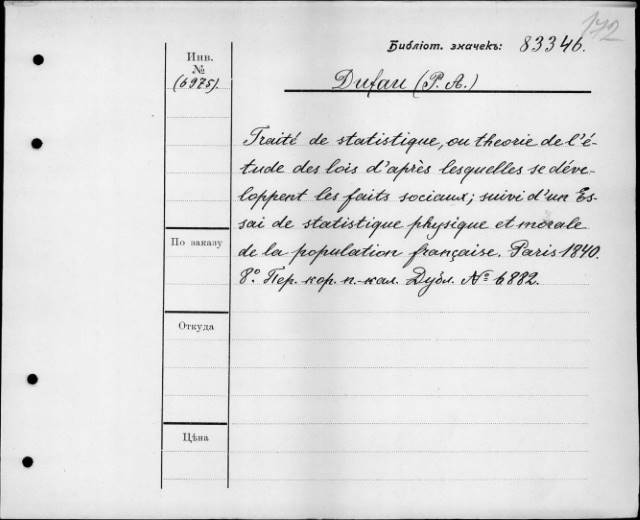 172
Библіот. значекъ: 83346.
Инв.
№
(6975).
Dufau (P. A.)
Traité de statistique, ou theorie de l'é-
tude des lois d'après lesquelles se déve-
loppent les faits sociaux; suivi d'un Es-
sai de statistique physique et morale
de la population française. Paris 1840.
8º. Пер. кор. п.-кал. Дубл. № 6882.
По заказу
Откуда
Цѣна